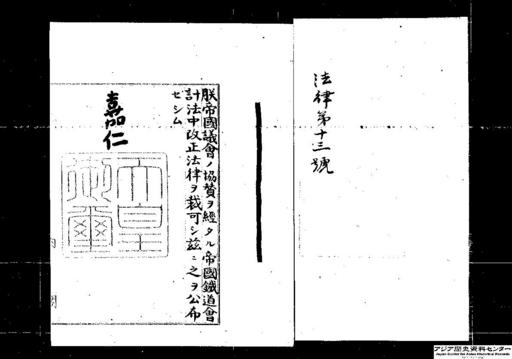 法律第十三號
朕帝國議會ノ協賛ヲ經タル帝國鐵道會
計法中改正法律ヲ裁可シ茲ニ之ヲ公布
セシム
嘉仁
天皇
御璽
アジア歴史資料センター
Japan Center for Asian Historical Records